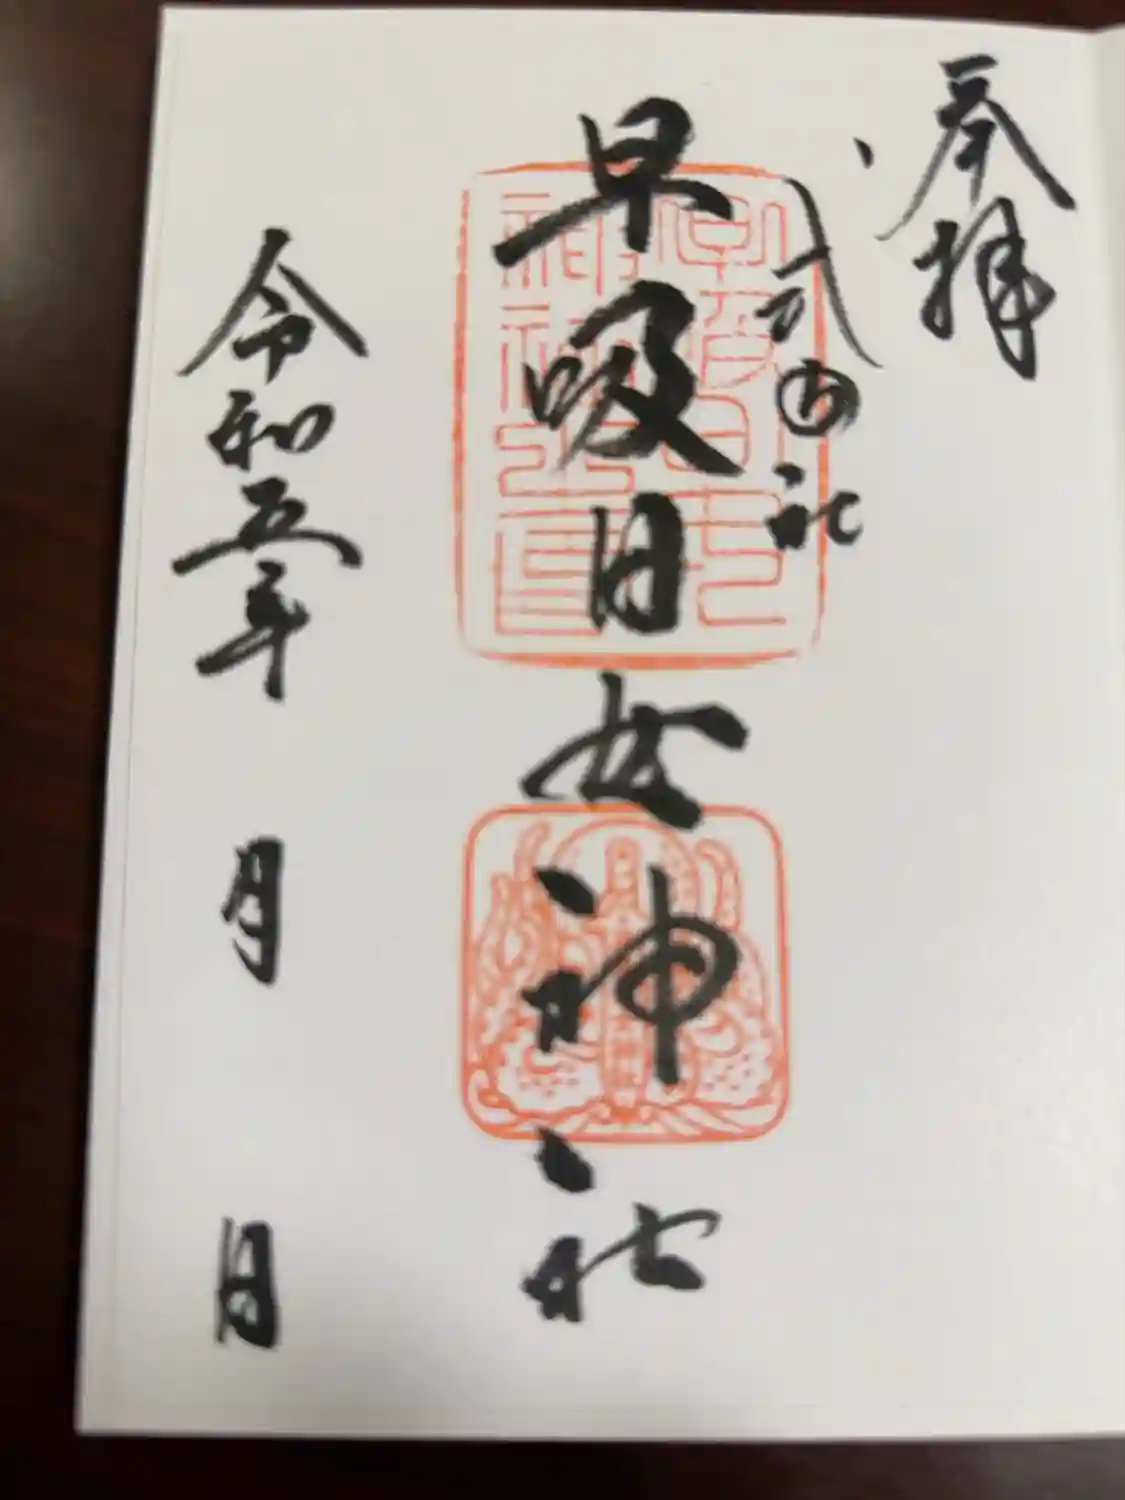 奉拝
式内社
早吸日女神社
令和五年 月 日